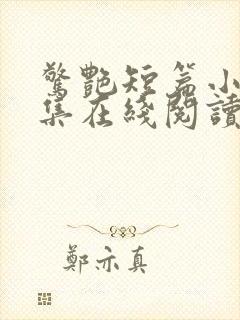 驚艷短篇小
集在綫閱讀
鄭亦真